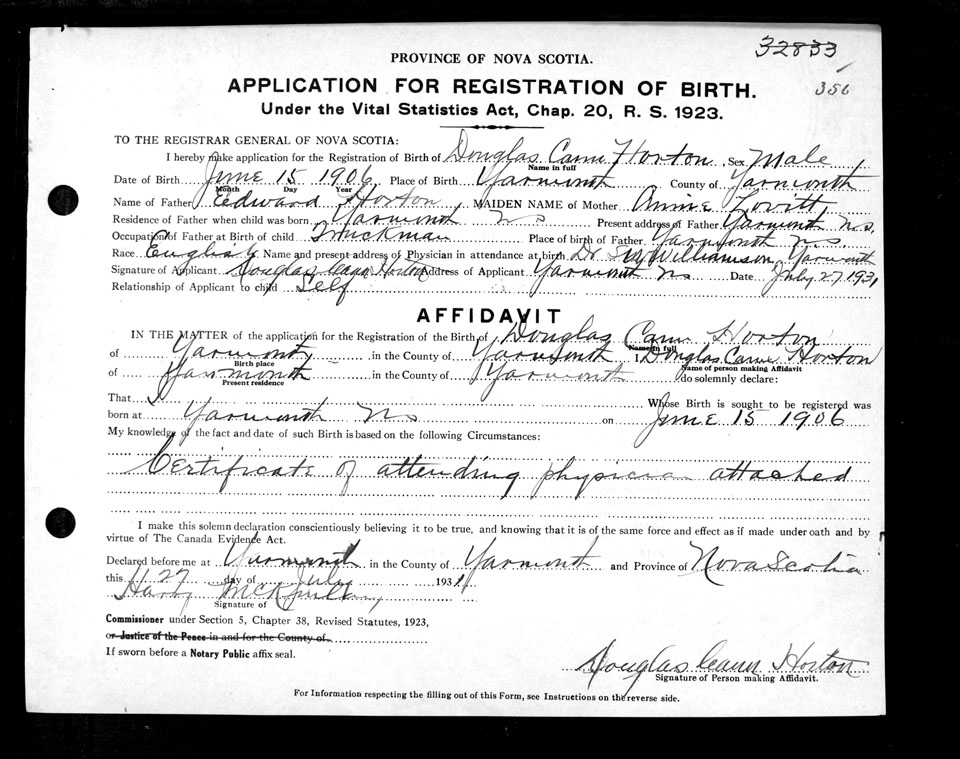 32833
356
PROVINCE OF NOVA SCOTIA.
APPLICATION FOR REGISTRATION OF BIRTH.
Under the Vital Statistics Act, Chap. 20, R. S. 1923.
TO THE REGISTRAR GENERAL OF NOVA SCOTIA:
I hereby make application for the Registration of Birth of Douglas Cann Horton Sex Male
Name in full
Date of Birth June 15 1906 Place of Birth Yarmouth County of Yarmouth
Month Day Year
Name of Father Edward Horton MAIDEN NAME of Mother Annie Lovitt
Residence of Father when child was born Yarmouth N S Present address of Father Yarmouth N.S.
Occupation of Father at Birth of child Truckman Place of birth of Father Yarmouth N.S.
Race English Name and present address of Physician in attendance at birth Dr Williamson Yarmouth
Signature of Applicant Douglas Cann Horton Address of Applicant Yarmouth N s Date July 27, 1931
Relationship of Applicant to child Self
AFFIDAVIT
IN THE MATTER of the application for the Registration of the Birth of Douglas Cann Horton
Name in full
of Yarmouth in the County of Yarmouth I Douglas Cann Horton
Birth place Name of person making Affidavit
of Yarmouth in the County of Yarmouth do solemnly declare:
Present residence
That I Whose Birth is sought to be registered was
born at Yarmouth N s on June 15 1906
My knowledge of the fact and date of such Birth is based on the following Circumstances:
Certificate of attending physician attached
I make this solemn declaration conscientiously believing it to be true, and knowing that it is of the same force and effect as if made under oath and by
virtue of The Canada Evidence Act.
Declared before me at Yarmouth in the County of Yarmouth and Province of Nova Scotia
this 27 day of July 1931
Signature of
Commissioner under Section 5, Chapter 38, Revised Statutes, 1923,
or Justice of the Peace in and for the County of
If sworn before a Notary Public affix seal.
Douglas Cann Horton
Signature of Person making Affidavit.
For Information respecting the filling out of this Form, see Instructions on the reverse side.